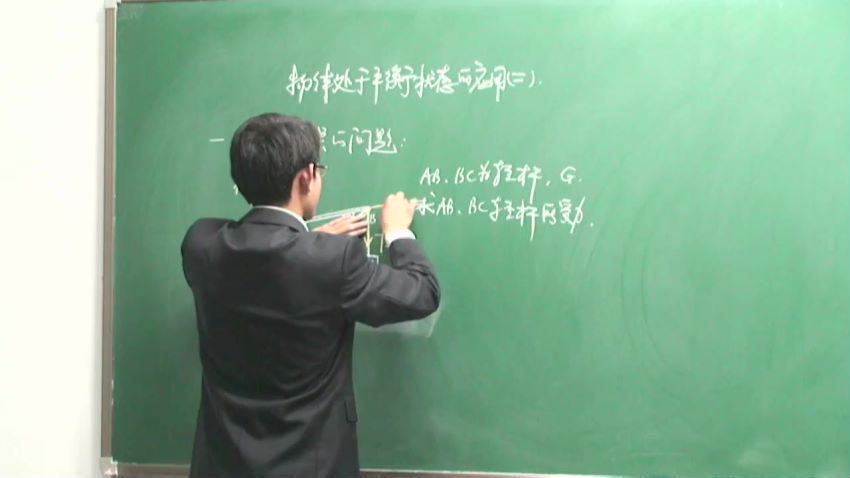 物体处于平衡状态的应用(二).
一
与问题:
AB、BC为轻杆, G.
求AB、BC轻杆的受力.
B
T